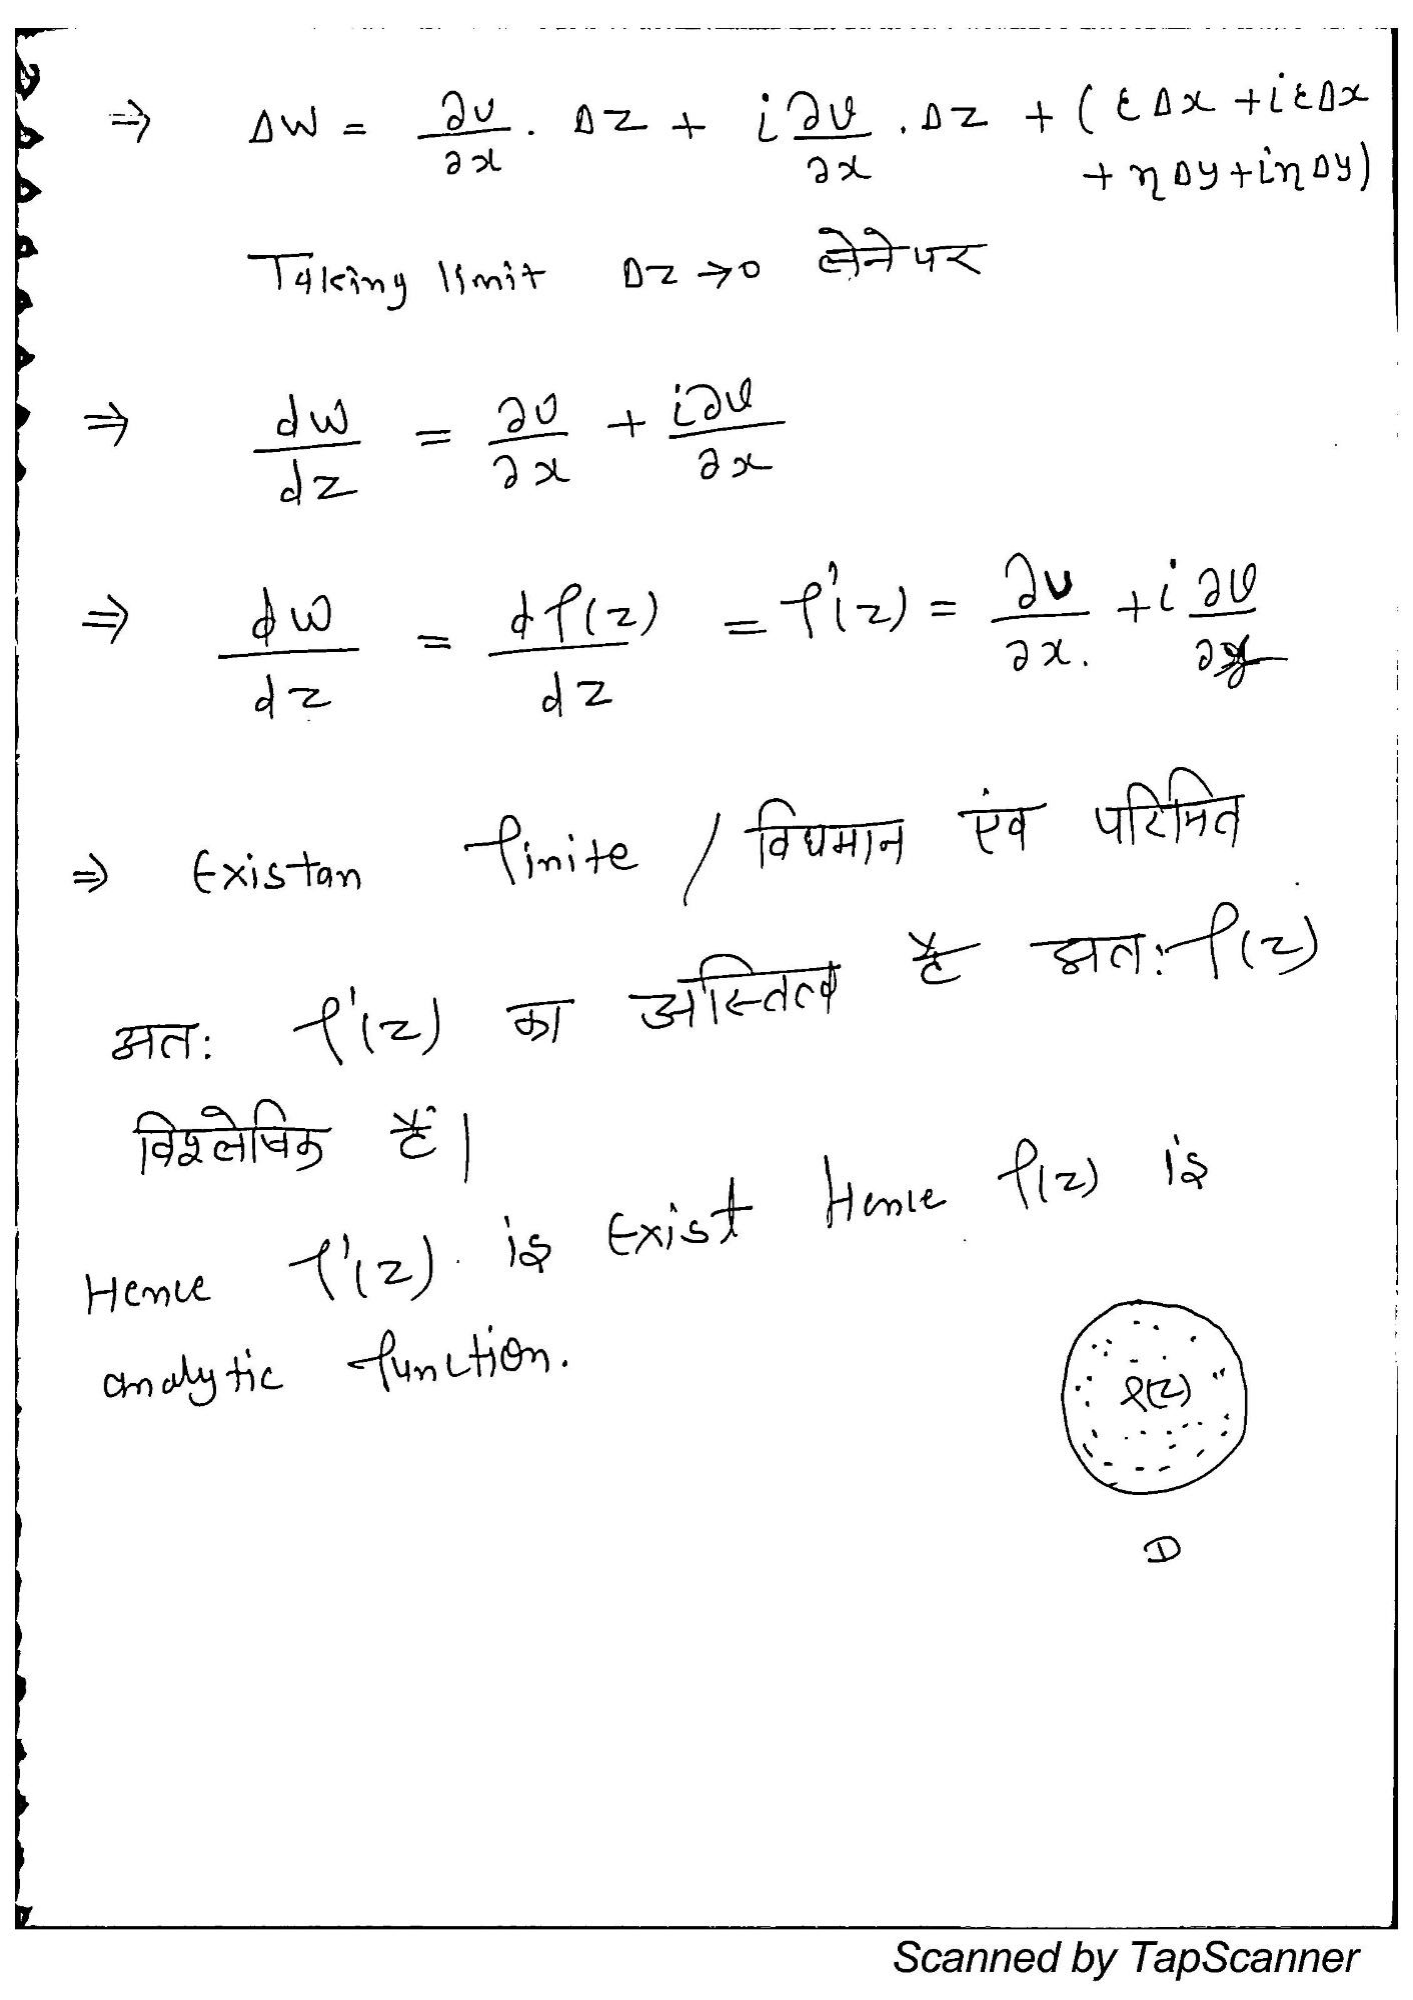 ⇒ ΔW = ∂u/∂x . Δz + i∂v/∂x . Δz + (εΔx + iεΔx
+ ηΔy + iηΔy)
Taking limit Δz → 0 लेने पर
⇒ dw/dz = ∂u/∂x + i∂v/∂x
⇒ dw/dz = df(z)/dz = f'(z) = ∂u/∂x. + i ∂v/∂x
⇒ Existan finite / विधमान एंव परिमित
अतः f'(z) का अस्तित्व है अतः f(z)
विश्लेषिक हैं।
Hence f'(z) is Exist Hence f(z) is
analytic function.
f(z)
D
Scanned by TapScanner